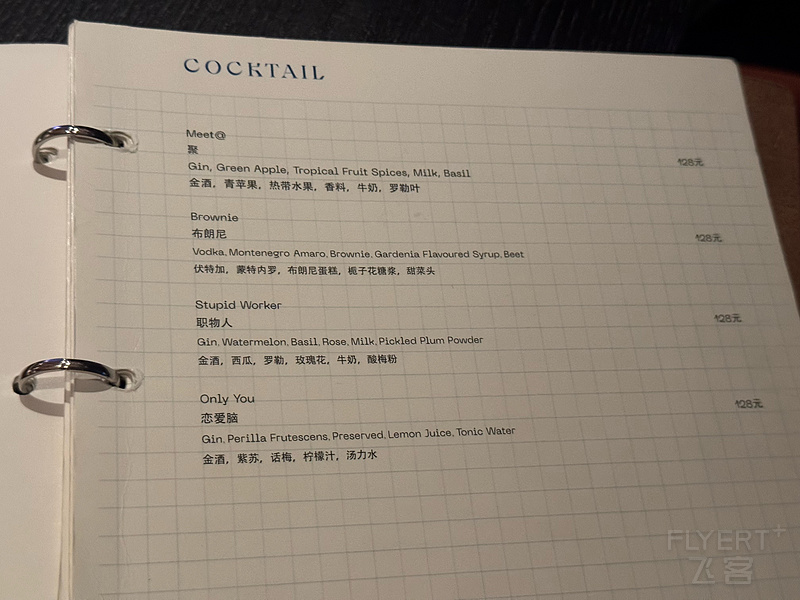 COCKTAIL
Meet@
聚
Gin, Green Apple, Tropical Fruit Spices, Milk, Basil
金酒，青苹果，热带水果，香料，牛奶，罗勒叶
128元
Brownie
布朗尼
Vodka, Montenegro Amaro, Brownie, Gardenia Flavoured Syrup, Beet
伏特加，蒙特内罗，布朗尼蛋糕，栀子花糖浆，甜菜头
128元
Stupid Worker
职物人
Gin, Watermelon, Basil, Rose, Milk, Pickled Plum Powder
金酒，西瓜，罗勒，玫瑰花，牛奶，酸梅粉
128元
Only You
恋爱脑
Gin, Perilla Frutescens, Preserved, Lemon Juice, Tonic Water
金酒，紫苏，话梅，柠檬汁，汤力水
128元
FLYERT+
飞客